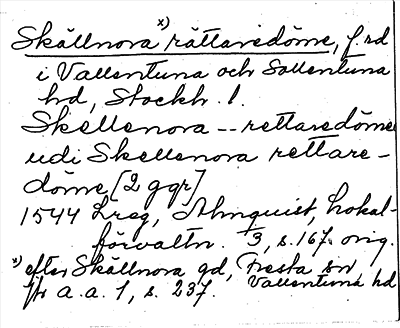 Skällnora x) rättaredöme, f. rd
i Vallentuna och Sollentuna
hd, Stockh. l.
Skellenora -- rettaredöme
udi Skellenora rettare-
döme [2 ggr]
1544 Lreg, Almquist, Lokal-
förvaltn. 3, s. 167. orig.
x) efter Skällnora gd, Fresta sn,
jfr a. a. 1, s. 237. Vallentuna hd